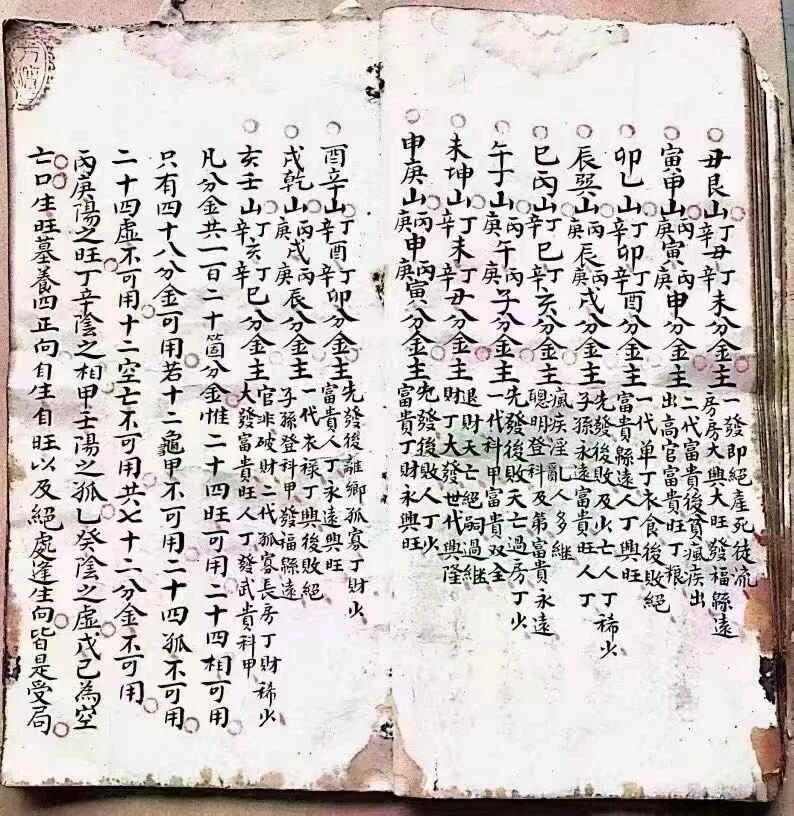 丑艮山丁辛丑丁辛未分金主一發即絕產死徒流房房大興大旺發福綿遠
寅甲山丙庚寅丙庚申分金主二代富貴後貧瘋疾出出高官富貴旺丁粮
卯乙山丁辛卯丁辛酉分金主一代单丁衣食後敗絕富貴綿遠人丁興旺
辰巽山丙庚辰丙庚戌分金主先發後敗及少亡人丁稀少子孫永遠富貴旺人丁
巳丙山丁辛巳丁辛亥分金主瘋疾淫亂人多継聰明登科及第富貴永遠
午丁山丙庚午丙庚子分金主先發後敗夭亡過房丁少一代科甲富貴双全
未坤山丁辛未丁辛丑分金主退財夭亡絕嗣過継財丁大發世代興隆
申庚山丙庚申丙庚寅分金主先發後敗人丁少富貴丁財永興旺
酉辛山丁辛酉丁辛卯分金主先發後離鄉孤寡丁財少富貴人丁永遠興旺
戌乾山丙庚戌丙庚辰分金主一代衣禄丁興後敗絕子孫登科甲發福綿遠
亥壬山丁辛亥丁辛巳分金主官非破財二代孤寡長房丁財稀少大發富貴旺人丁發武貴科甲
凡分金共一百二十箇分金惟二十四旺可用二十四相可用
只有四十八分金可用若十二龜甲不可用二十四孤不可用
二十四虛不可用十二空亡不可用共七十二分金不可用
丙庚陽之旺丁辛陰之相甲壬陽之孤乙癸陰之虛戊己為空
亡口生旺墓養四正向自生自旺以及絕處逢生向皆是受局